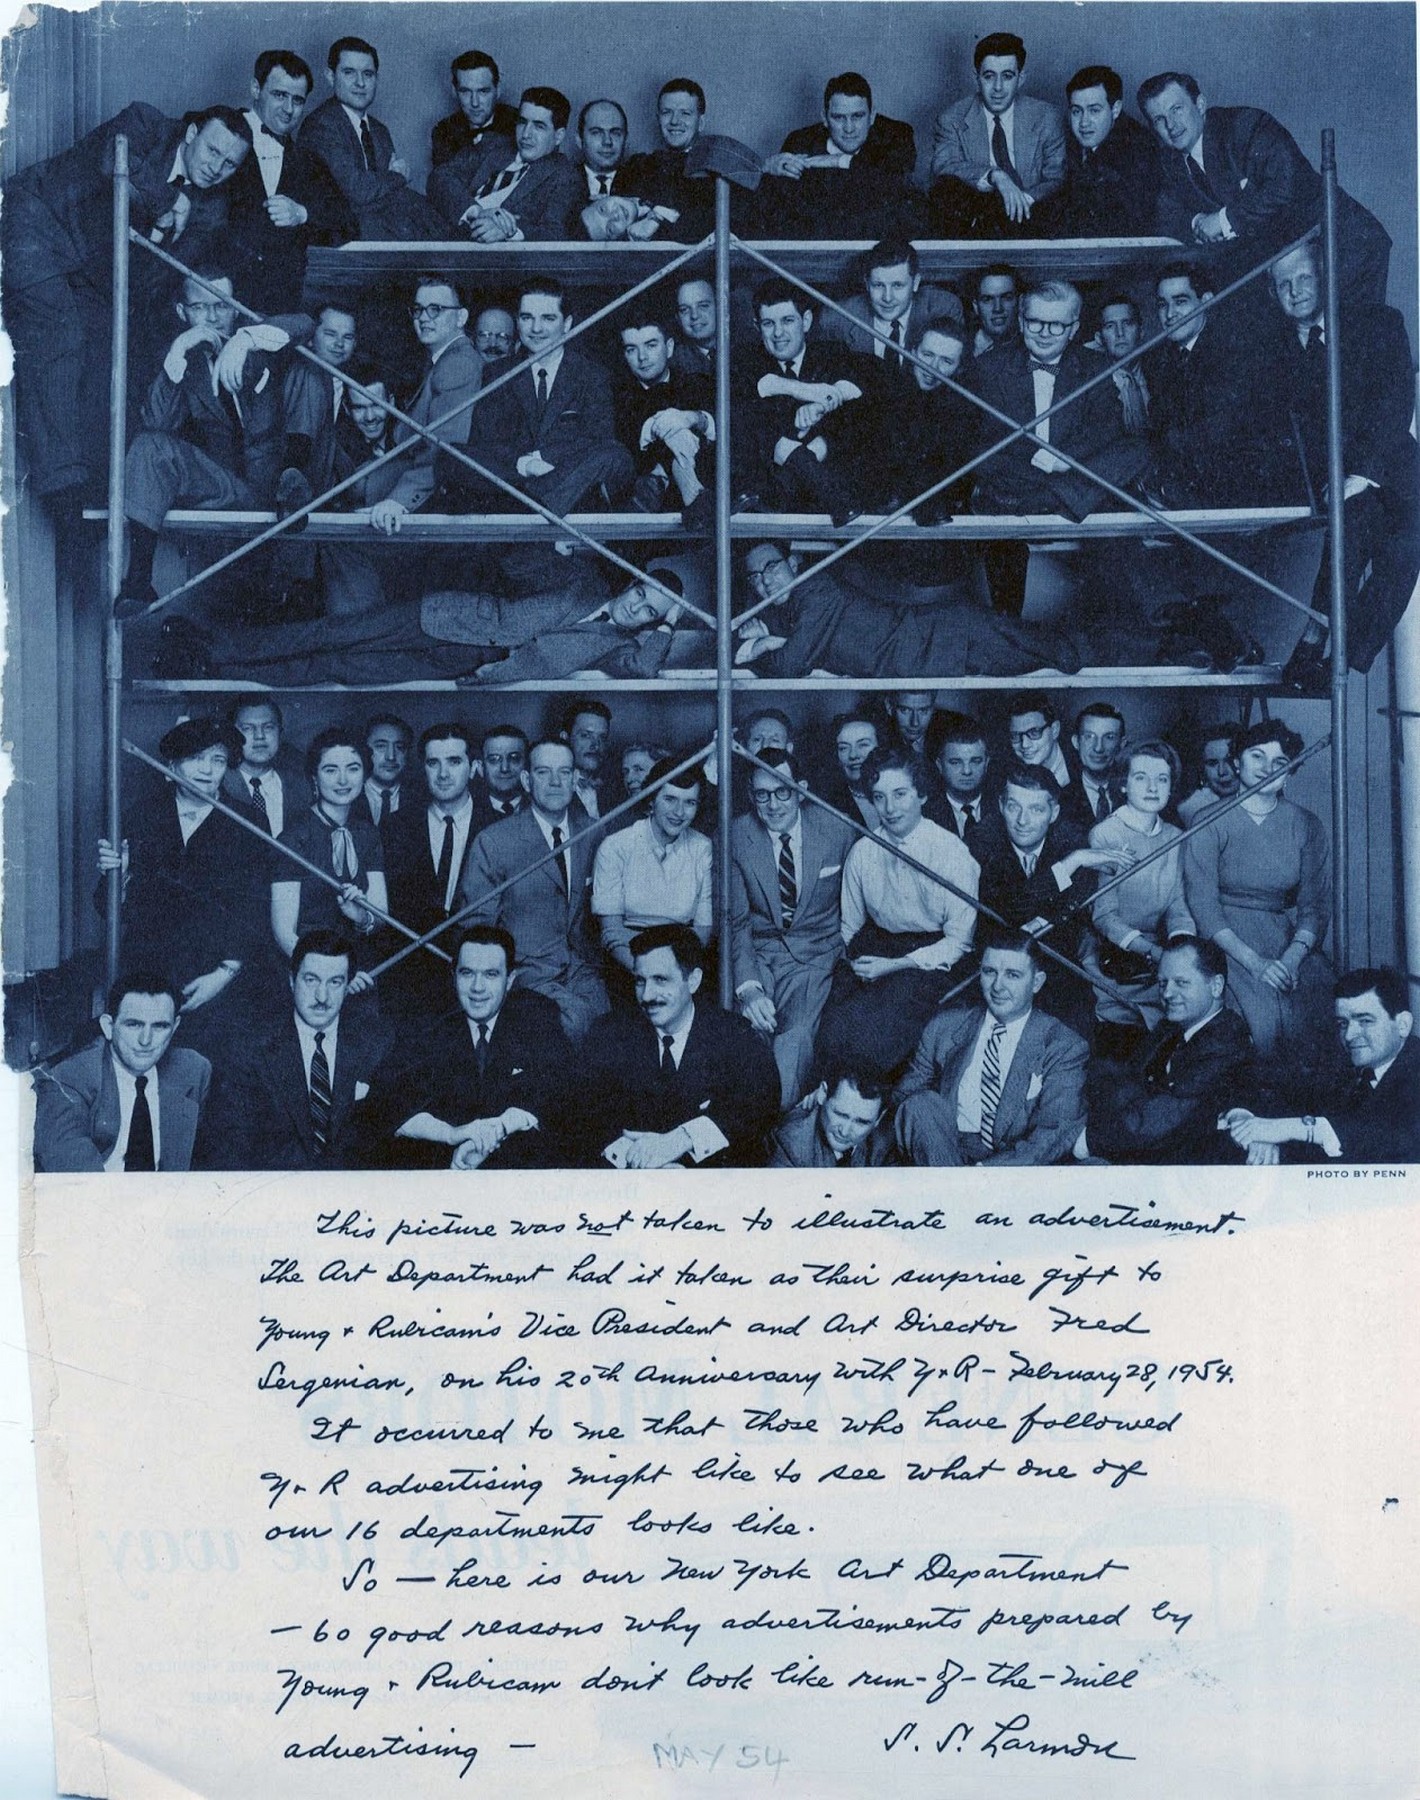 PHOTO BY PENN
This picture was not taken to illustrate an advertisement.
The Art Department had it taken as their surprise gift to
Young + Rubicam's Vice President and Art Director Fred
Sergenian, on his 20th Anniversary with Y+R – February 28, 1954.
It occurred to me that those who have followed
Y+R advertising might like to see what one of
our 16 departments looks like.
So — here is our New York Art Department
— 60 good reasons why advertisements prepared by
Young + Rubicam don't look like run-of-the-mill
advertising —
S. S. Larmon
MAY 54